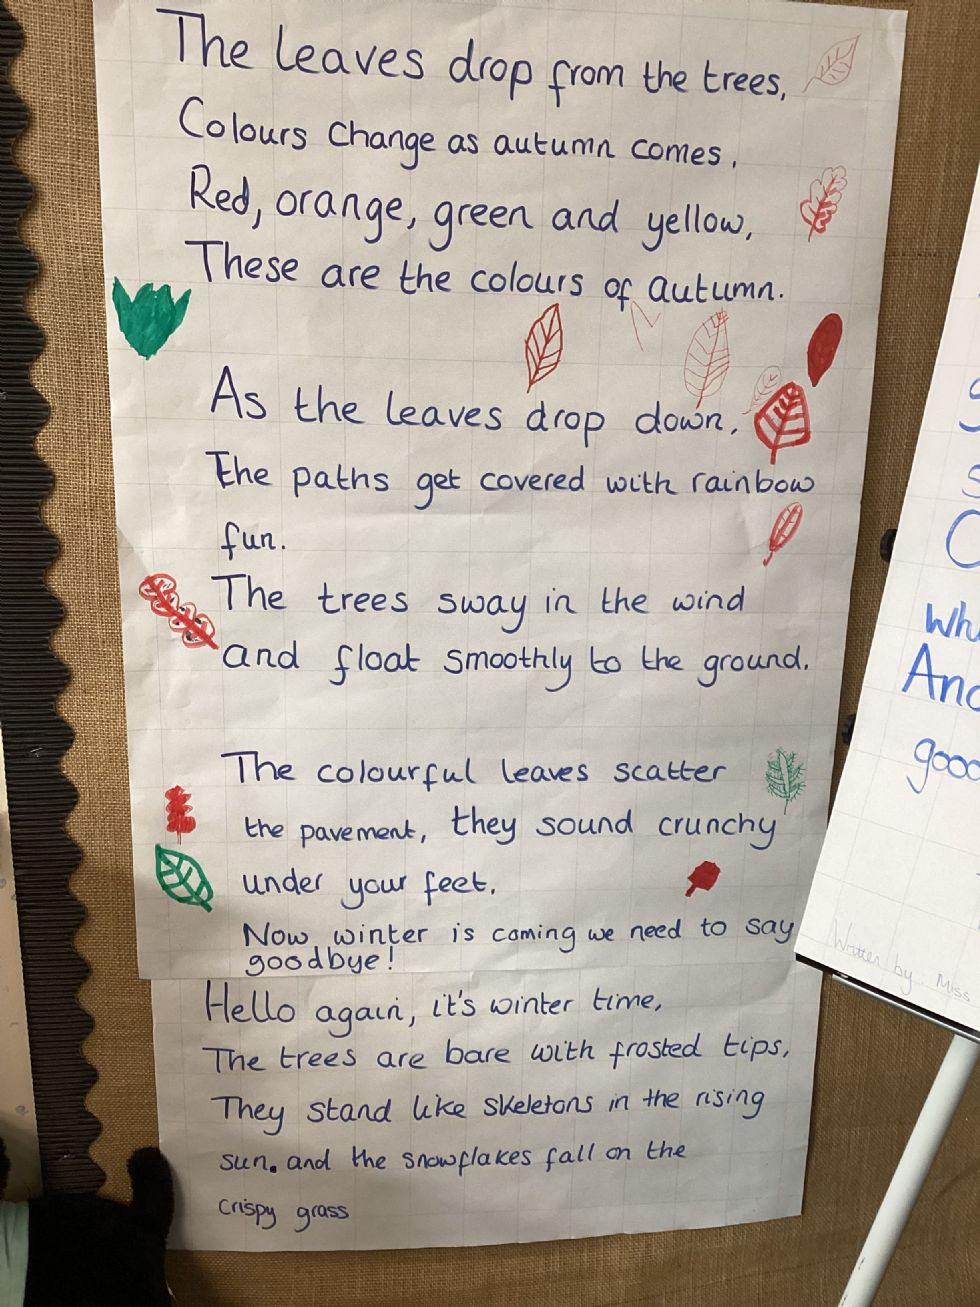 The leaves drop from the trees,
Colours change as autumn comes,
Red, orange, green and yellow,
These are the colours of autumn.
As the leaves drop down,
The paths get covered with rainbow
fun.
The trees sway in the wind
and float smoothly to the ground.
The colourful leaves scatter
the pavement, they sound crunchy
under your feet.
Now winter is coming we need to say
goodbye!
Hello again, it's winter time,
The trees are bare with frosted tips,
They stand like skeletons in the rising
sun. and the snowflakes fall on the
crispy grass
And
Written by Miss